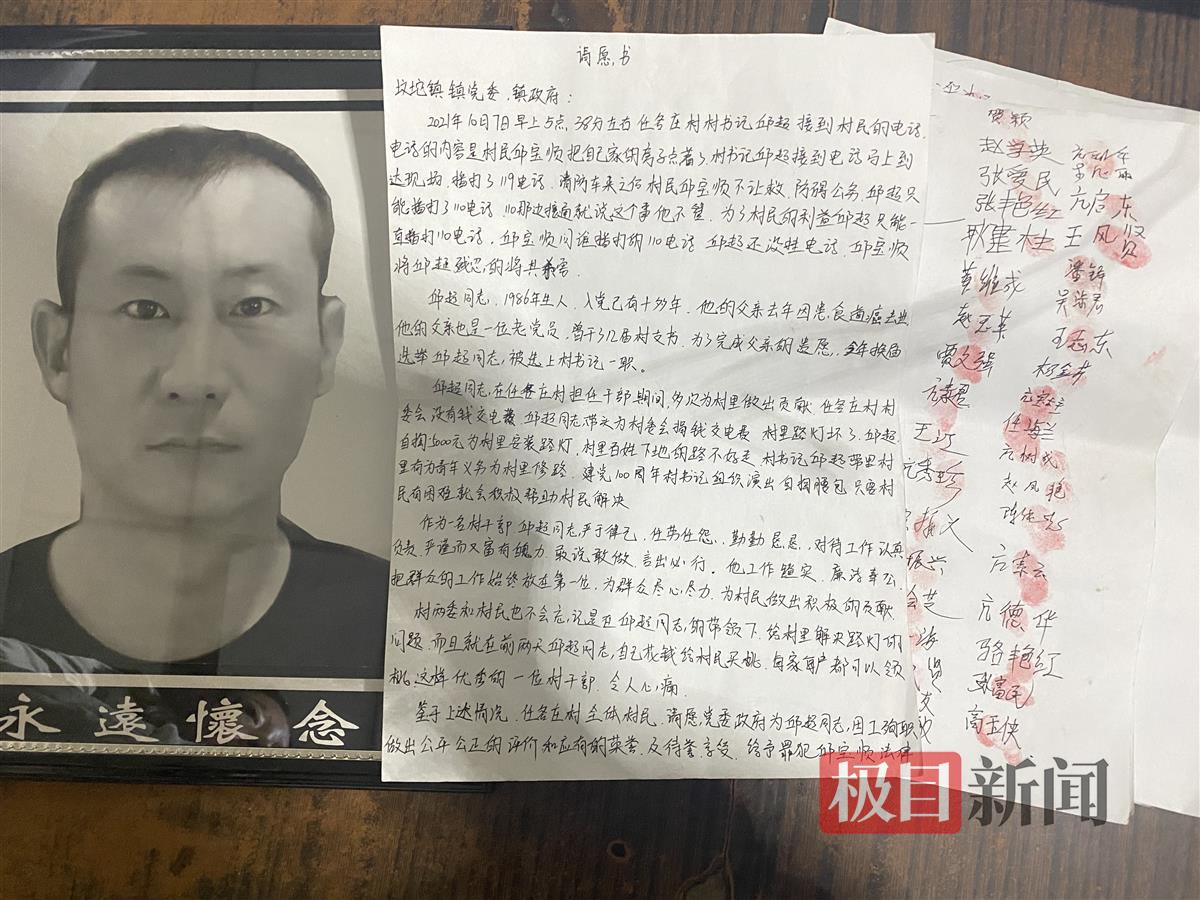 永遠懷念
请愿书
坟坨镇镇党委、镇政府：
2021年10月7日早上5点38分左右任各庄村村书记邱超接到村民的电话,
电话的内容是村民邱宝顺把自己家的房子点着了村书记邱超接到电话马上到
达现场,拨打了119电话.消防车来之后村民邱宝顺不让救.防碍公务.邱超只
能拨打了110电话,110那边接通就说这个事他不管.为了村民的利益邱超只能一
直拨打110电话,邱宝顺问谁拨打的110电话邱超还没挂电话.邱宝顺
将邱超残忍的将其杀害.
邱超同志,1986年生人,入党已有十多年.他的父亲去年因患食道癌去世
他的父亲也是一位老党员,曾干312届村支书.为了完成父亲的遗愿,今年换届
选举邱超同志,被选上村书记一职.
邱超同志,在任各庄村担任干部期间,多次为村里做出贡献.任各庄村村
委会没有钱交电费邱超同志带头为村委会捐钱交电费村里路灯坏了.邱超
自掏5000元为村里安装路灯.村里百姓下地的路不好走.村书记邱超带里村
里有为青年义务为村里修路.建党100周年村书记组织演出自掏腰包只要村
民有困难就会积极帮助村民解决
作为一名村干部邱超同志,严于律己,任劳任怨、勤勤恳恳.对待工作认真
负责.严谨而又富有魄力.敢说敢做.言出必行.他工作踏实.廉洁奉公.
把群众的工作始终放在第一位.为群众尽心尽力.为村民做出积极的贡献.
村两委和村民也不会忘记是在邱超同志,的带领下.给村里解决路灯的
问题.而且就在前两天邱超同志,自己花钱给村民买桃.每家每户都可以领
桃,这样优秀的一位村干部.令人心痛.
鉴于上述情况.任各庄村全体村民.请愿,党委政府为邱超同志,因工殉职
做出公平公正的评价和应有的荣誉.及待誉享受.给予罪犯邱宝顺法律
贾颖
赵学英
张爱民
张丰艳红 亢启东
耿建柱 王凤贤
黄维成 潘锦
赵玉英
王志东
贾文强 杨金芳
王江 任海兰
亢秀珍 亢树成
赵凤艳
振文
振兴 亢素云
会芝 亢德华
海 骆艳红
贤 张富民
友 高玉侠
极目新闻